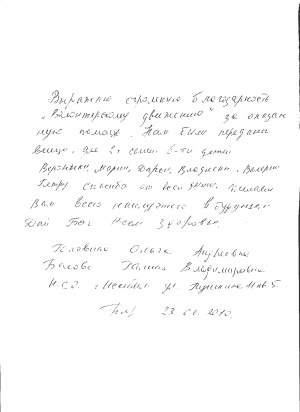 Выражаю огромную благодарность
"Волонтерскому движению" за оказан
ную помощь. Нам были переданы
вещи, для 2х семей 5-ти детей
Вероники, Марии, Дарьи, Владислава, Валерии
спасибо от всей души. Желаем
Вам всего наилучшего в будущем
Дай Бог Всем здоровья.
Головина Ольга Андреевна
Галина Владимировна
Н.С.О. г. ул. Пушкина
23 2010.